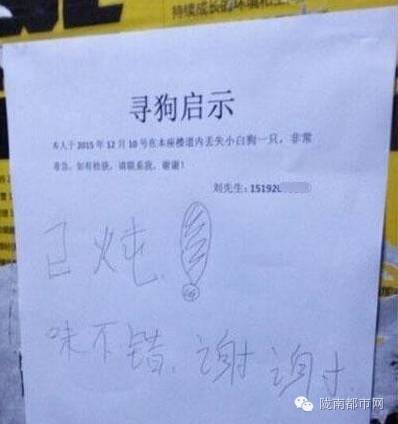 持续成长的环境和
寻狗启示
本人于2015年12月10号在本座楼道内丢失小白狗一只，非常
着急，如有检获，请联系我，谢谢！
刘先生：15192
已炖！
味不错、谢谢
陇南都市网